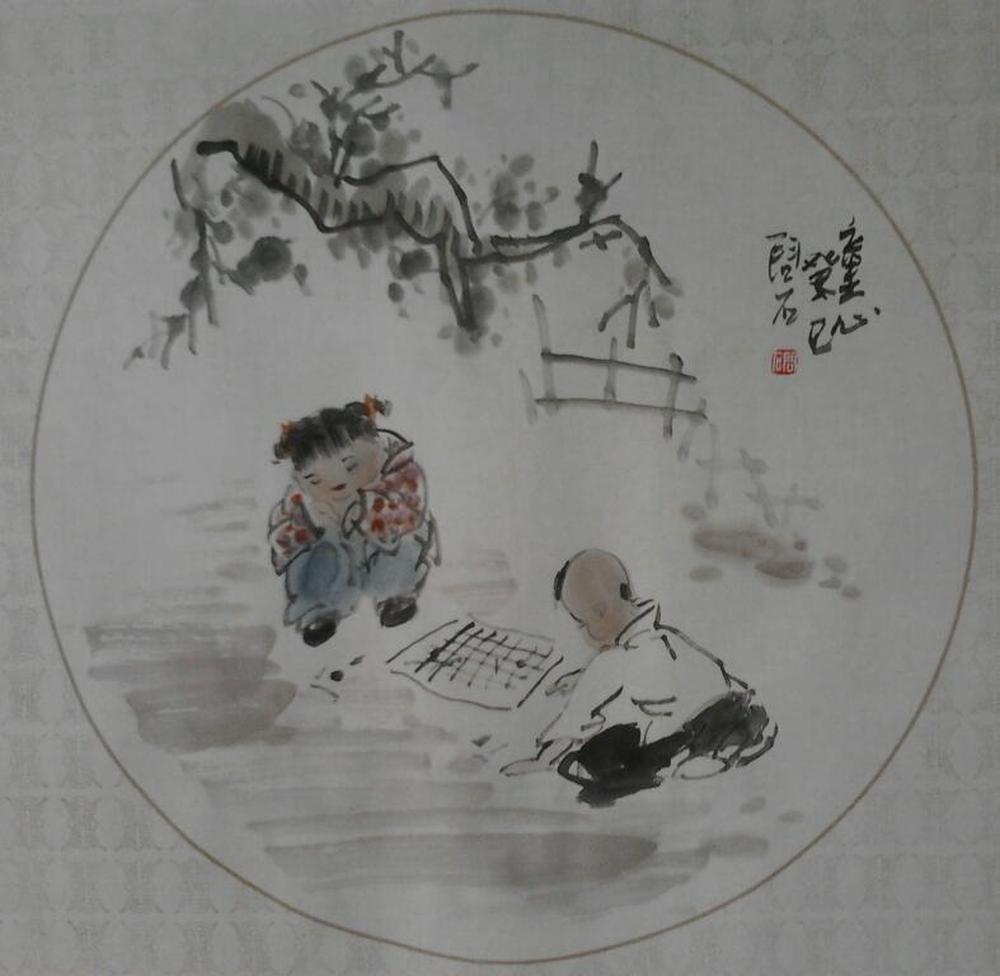 童心
癸巳
問石